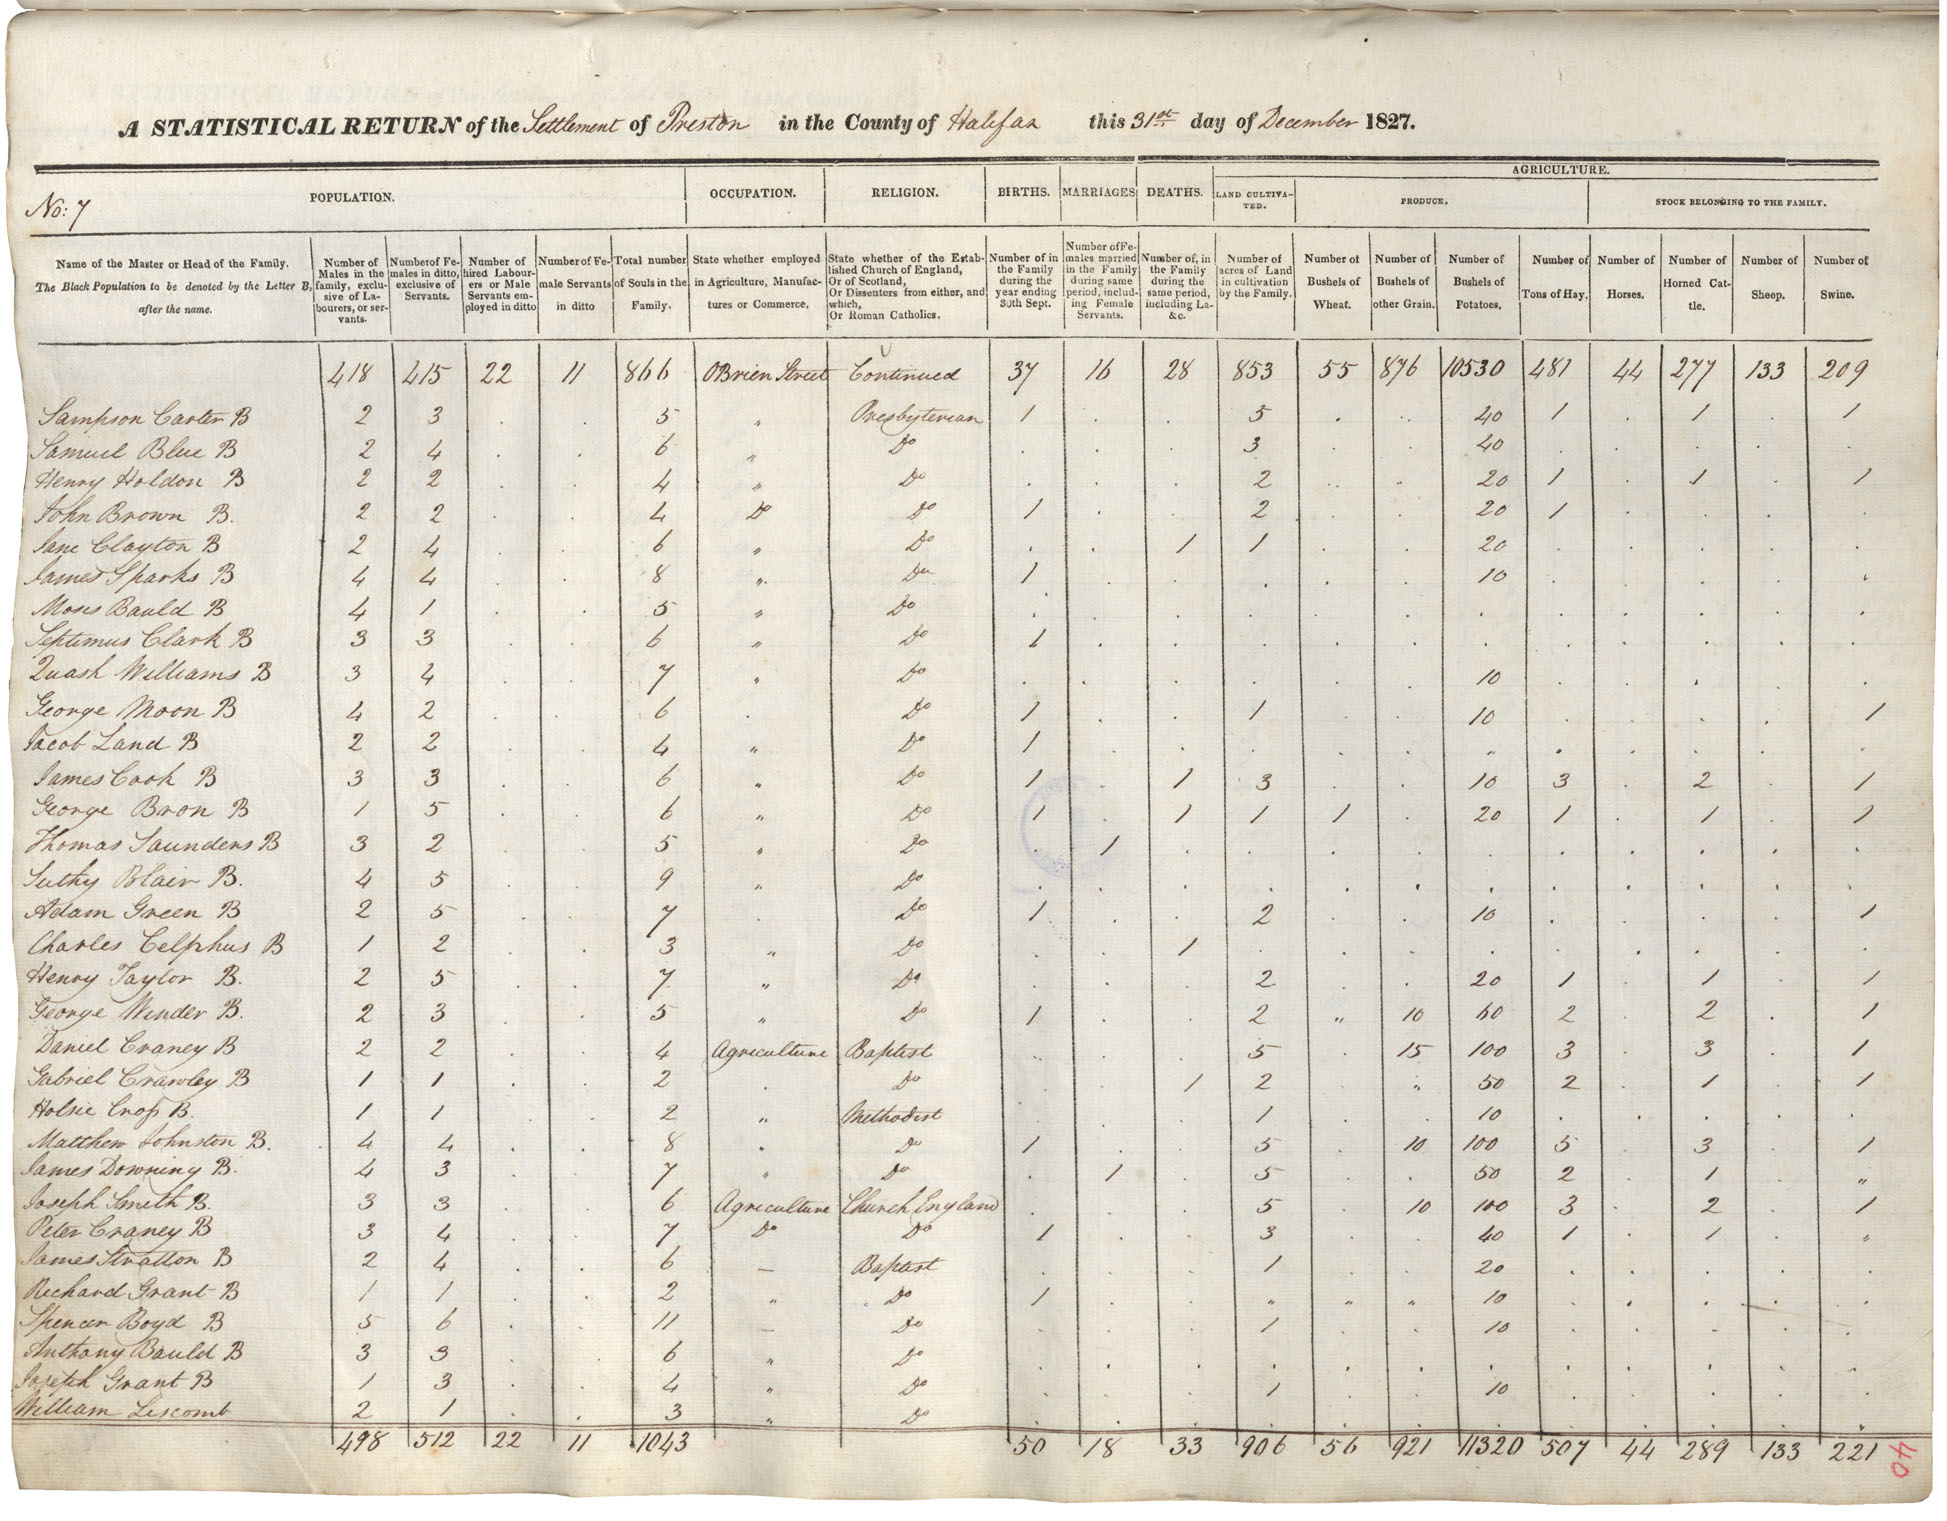 A STATISTICAL RETURN of the Settlement of Preston in the County of Halifax this 31st day of December 1827.
AGRICULTURE.
No: 7 POPULATION. OCCUPATION. RELIGION. BIRTHS. MARRIAGES DEATHS. LAND CULTIVA-TED. PRODUCE. STOCK BELONGING TO THE FAMILY.
Name of the Master or Head of the Family. The Black Population to be denoted by the Letter B, after the name.
Number of Males in the family, exclusive of Labourers, or servants.
Number of Females in ditto, exclusive of Servants.
Number of hired Labourers or Male Servants employed in ditto
Number of Female Servants in ditto
Total number of Souls in the Family.
State whether employed in Agriculture, Manufactures or Commerce.
State whether of the Established Church of England, Or of Scotland, Or Dissenters from either, and which, Or Roman Catholics.
Number of in the Family during the year ending 30th Sept.
Number of Females married in the Family during same period, including Female Servants.
Number of, in the Family during the same period, including La-&c.
Number of acres of Land in cultivation by the Family.
Number of Bushels of Wheat.
Number of Bushels of other Grain.
Number of Bushels of Potatoes.
Number of Tons of Hay.
Number of Horses.
Number of Horned Cattle.
Number of Sheep.
Number of Swine.
418 415 22 11 866 OBrien Street Continued 37 16 28 853 55 876 10530 481 44 277 133 209
Sampson Carter B 2 3 . . 5 " Presbyterian 1 . . 5 . . 40 1 . 1 . 1
Samuel Blue B 2 4 . . 6 " Do . . . 3 . . 40 . . . . .
Henry Holdon B 2 2 . . 4 " Do . . . 2 . . 20 1 . 1 . 1
John Brown B. 2 2 . . 4 Do Do 1 . . 2 . . 20 1 . . . .
Jane Clayton B 2 4 . . 6 " Do . . 1 1 . . 20 . . . . .
James Sparks B 4 4 . . 8 " Do 1 . . . . . 10 . . . . .
Moses Bauld B 4 1 . . 5 " Do . . . . . . . . . . . .
Septimus Clark B 3 3 . . 6 " Do 1 . . . . . . . . . . .
Quash Williams B 3 4 . . 7 " Do . . . . . . 10 . . . . .
George Moon B 4 2 . . 6 . Do 1 . . 1 . . 10 . . . . 1
Jacob Land B 2 2 . . 4 " Do 1 . . . . . " . . . . .
James Cook B 3 3 . . 6 " Do 1 . 1 3 . . 10 3 . 2 . 1
George Bron B 1 5 . . 6 " Do 1 . 1 1 1 . 20 1 . 1 . 1
Thomas Saunders B 3 2 . . 5 " Do . 1 . . . . . . . . . .
Suthy Blair B. 4 5 . . 9 " Do . . . . . . . . . . . .
Adam Green B 2 5 . . 7 . Do 1 . . 2 . . 10 . . . . 1
Charles Celphus B 1 2 . . 3 " Do . . 1 . . . . . . . . .
Henry Taylor B. 2 5 . . 7 " Do . . . 2 . . 20 1 . 1 . 1
George Winder B. 2 3 . . 5 " Do 1 . . 2 " 10 60 2 . 2 . 1
Daniel Craney B 2 2 . . 4 Agriculture Baptist . . . 5 . 15 100 3 . 3 . 1
Gabriel Crawley B 1 1 . . 2 . Do . . 1 2 . " 50 2 . 1 . 1
Holsie Crop B. 1 1 . . 2 " Methodist . . . 1 . . 10 . . . . .
Matthew Johnston B. 4 4 . . 8 " Do 1 . . 5 . 10 100 5 . 3 . 1
James Downing B. 4 3 . . 7 " Do . 1 . 5 . . 50 2 . 1 . "
Joseph Smith B. 3 3 . . 6 Agriculture Church England . . . 5 . 10 100 3 . 2 . 1
Peter Craney B 3 4 . . 7 Do Do 1 . . 3 . . 40 1 . 1 . "
James Stratton B 2 4 . . 6 — Baptist . . . 1 . . 20 . . . . .
Richard Grant B 1 1 . . 2 " Do 1 . . " " " 10 . . . . .
Spencer Boyd B 5 6 . . 11 — Do . . . 1 . . 10 . . . . .
Anthony Bauld B 3 3 . . 6 " Do . . . . . . . . . . . .
Joseph Grant B 1 3 . . 4 " Do . . . 1 . . 10 . . . . .
William Liscomb 2 1 . . 3 " Do . . . . . . . . . . . "
498 512 22 11 1043 50 18 33 906 56 921 11320 507 44 289 133 221
40